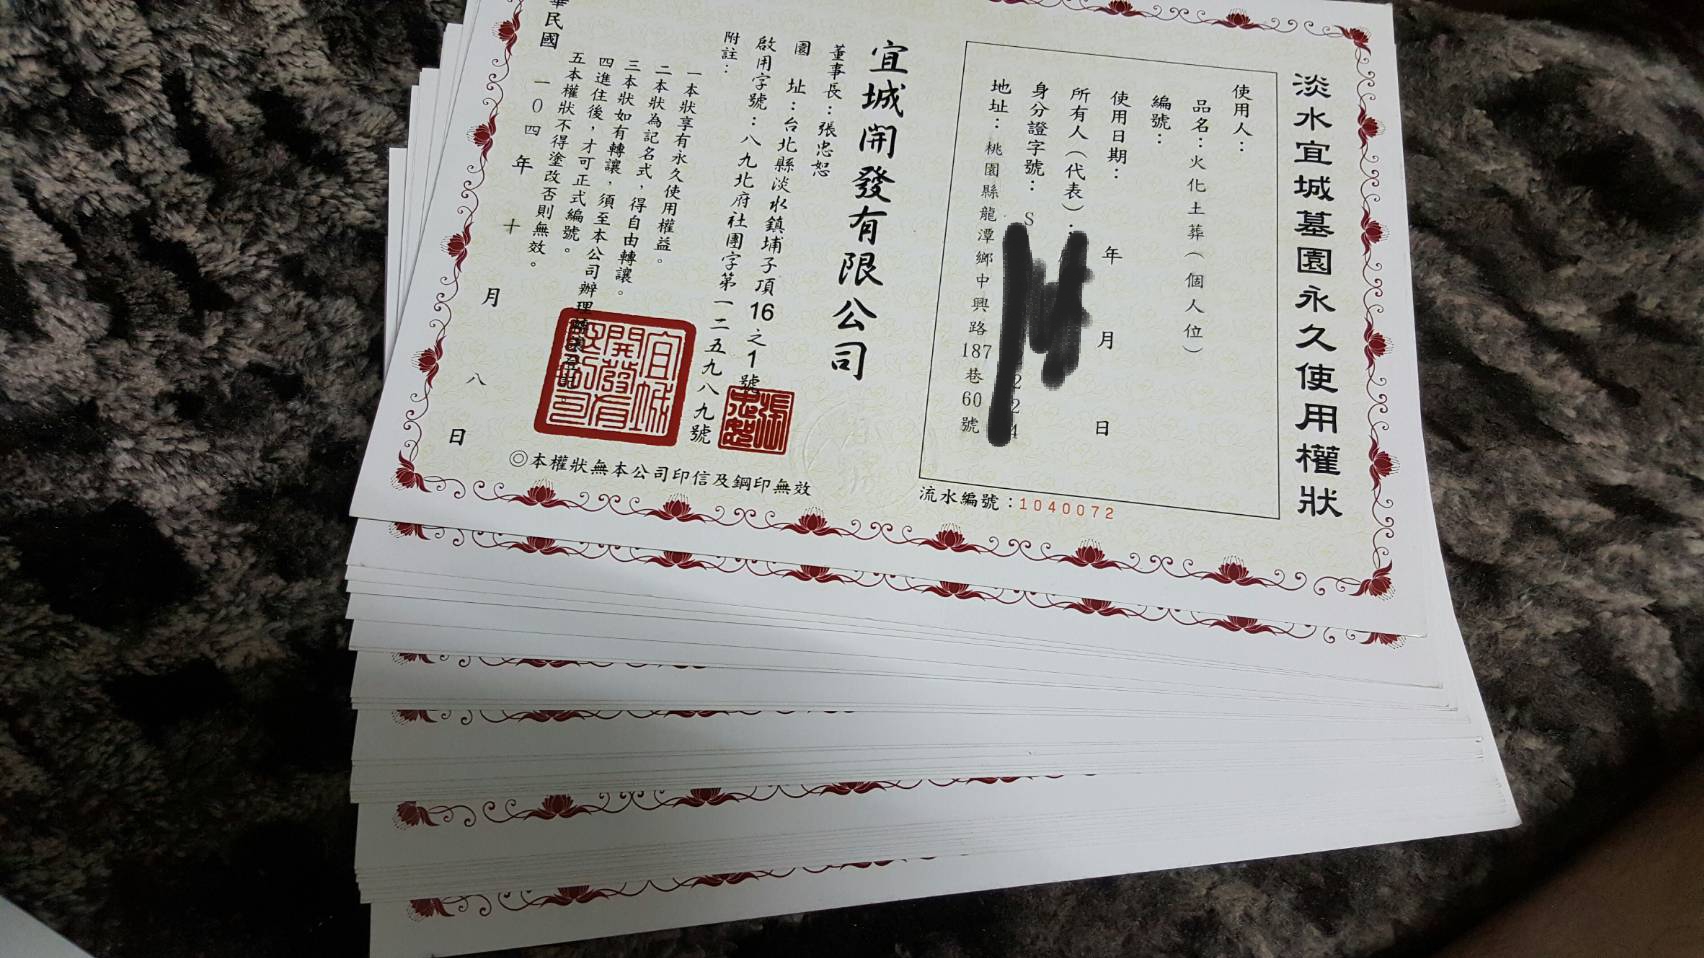 淡水宜城墓園永久使用權狀
使用人：
品名：火化土葬（個人位）
編號：
使用日期：　年　月　日
所有人（代表）：
身分證字號：S
地址：桃園縣龍潭鄉中興路187巷60號
流水編號：1040072
宜城開發有限公司
董事長：張忠恕
園　址：台北縣淡水鎮埔子頂16之1號
啟用字號：八九北府社團字第一二五九八九號
附註：
一本狀享有永久使用權益。
二本狀為記名式，得自由轉讓。
三本狀如有轉讓，須至本公司辦理
四進住後，才可正式編號。
五本權狀不得塗改否則無效。
華民國　一0四　年　十　月　八　日
◎本權狀無本公司印信及鋼印無效
宜城
開發有
限公司
張
忠恕